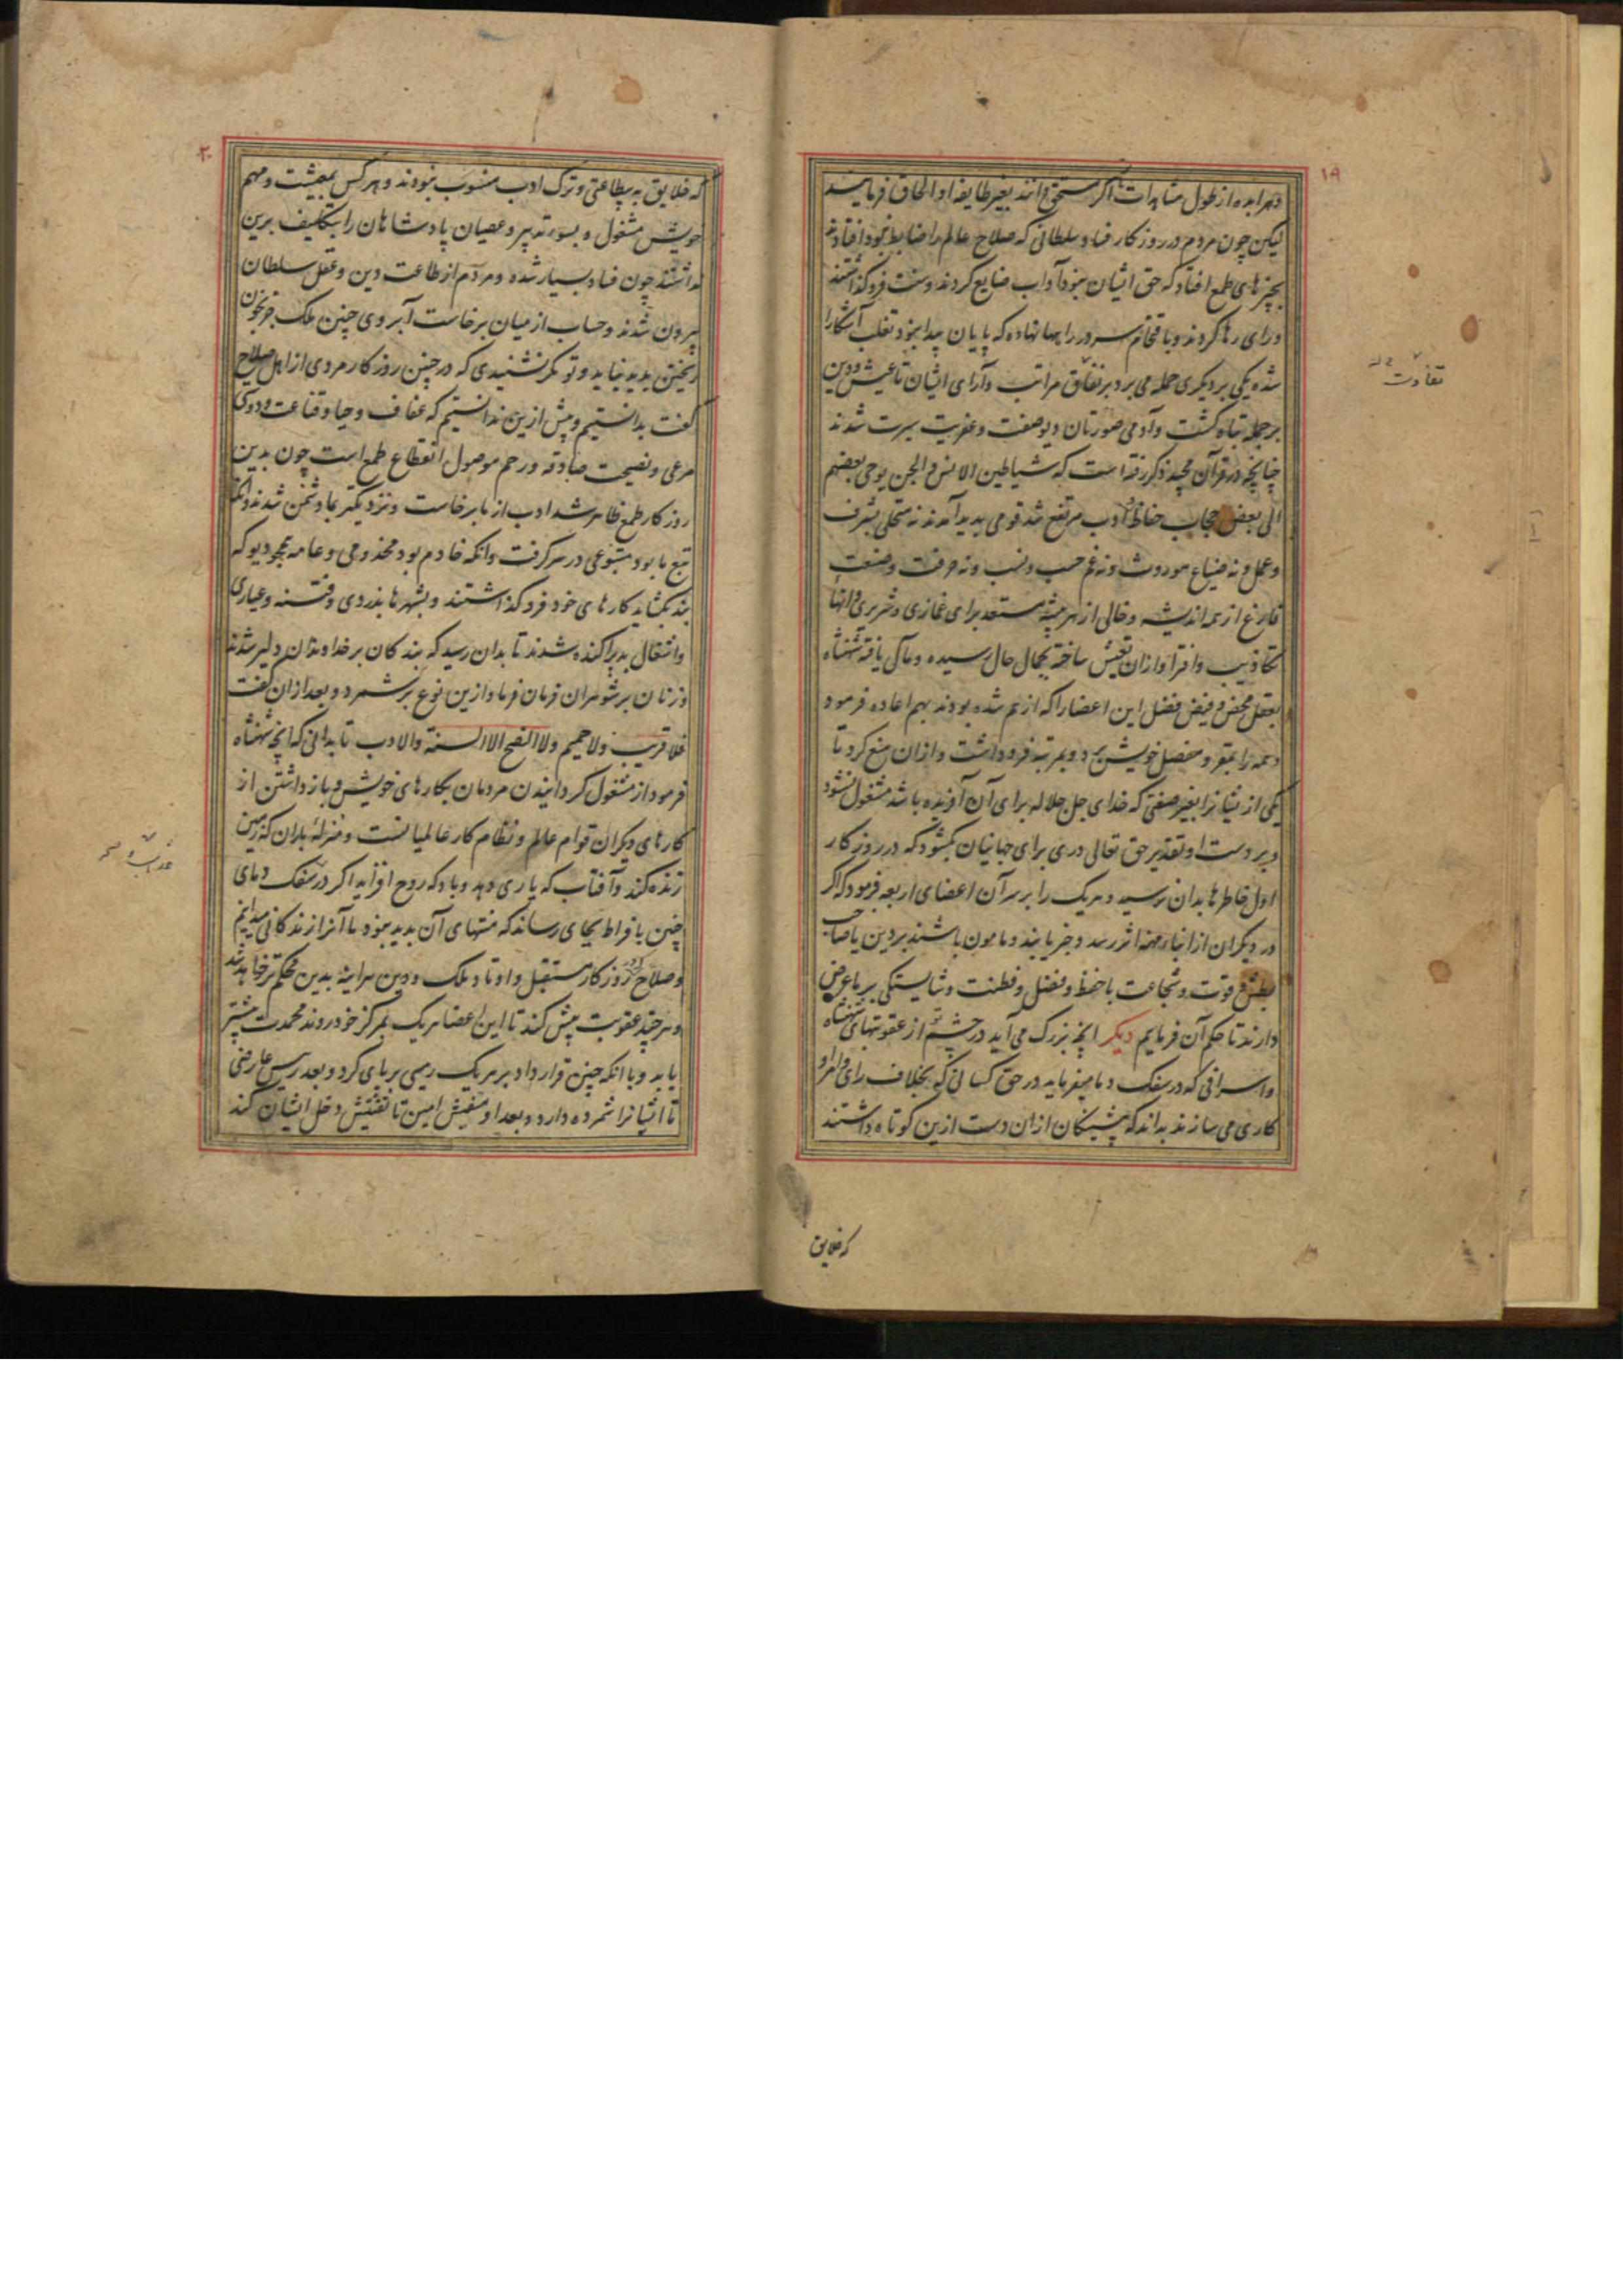 ۱۹
و بهرا بده از طول مشاهدات تا اگر مستحق دانند بغیر طایفه او الحاق فرمایند
لیکن چون مردم در روزکار فساد و سلطانی که صلاح عالم را ضابط نبود افتادند
بچیزهای طمع افتاد که حق ایشان نبود آداب ضایع کردند و سنت فرو گذاشتند
و رای رها کردند و باقتحام سر در راهها نهاده که پایان پیدا نبود تغلب آشکارا
شده یکی بر دیگری حمله می برد بر تفاوت مراتب و آرای ایشان تا عیش و دین
بر جمله تباه کشت و آدمی صورتان دیو صفت و عفریت سیرت شدند
چنانچه در قرآن مجید ذکر رفته است که شیاطین الانس و الجن یوحی بعضهم
الی بعض حجاب حفاظ و ادب مرتفع شد قومی پدید آمدند نه متحلی بشرف
و عمل و نه ضیاع موروث و نه غم حسب و نسب و نه حرفت و صنعت
فارغ از همه اندیشه و خالی از هر پیشه مستعد برای غمازی و شریری و انها
تکاذیب و افترا و ازان تعیش ساخته بجمال حال رسیده و مال یافته شهنشاه
بعقل محض و فیض فضل این اعضا را که از هم شده بودند بهم اعاده فرمود
و همه را بمقر و مفصل خویش برد و بمرتبه فرو داشت و ازان منع کرد تا
یکی از یشانرا بغیر صنعتی که خدای جل جلاله برای آن آفریده باشد مشغول نشود
و بر دست او تقدیر حق تعالی دری برای جهانیان بکشود که در روزکار
اول خاطرها بدان نرسید و هر یک را بر سر آن اعضای اربعه فرمود که اکر
در دیکران از ابنای مهنه اثر رشد و خیر یابند و مامون باشند بر دین یا صاحب
بطش و قوت و شجاعت با حفظ و فضل و فطنت و شایستکی بر ما عرض
دارند تا حکم آن فرمایم دیکر آنچه بزرک می آید در چشم تو از عقوبتهای شهنشاه
و اسرافی که در سفک دما میفرماید در حق کسانی که بخلاف رای و امر او
کاری می سازند بداند که پیشینکان ازان دست ازین کوتاه داشتند
که خلایق
۲۰
که خلایق به بیطاعتی و ترک ادب منسوب نبودند و هر کس بمعیشت و مهم
خویش مشغول و بسوء تدبیر و عصیان پادشاهان را بتکلیف برین
نداشتند چون فساد بسیار شده و مردم از طاعت دین و عقل سلطان
بیرون شدند و حساب از میان برخاست آبروی چنین ملک جز بخون
ریختن پدید نیاید و تو مکر نشنیدی که در چنین روزکار مردی از اهل صلاح
کفت بدانستیم و پیش ازین ندانستیم که عفاف و حیا و قناعت و دوستی
مرعی و نصیحت صادقه و رحم موصول انقطاع طمع است چون بدین
روزکار طمع ظاهر شد ادب از ما برخاست و نزدیکتر بما دشمن شدند و آنکه
تبع ما بود متبوعی در سر کرفت و آنکه خادم بود مخدومی و عامه همچو دیو که
بند بکشاید کارهای خود فرو کذاشتند و بشهرها بدزدی و فتنه و عیاری
و اشغال بد پراکنده شدند تا بدان رسید که بندکان بر خداوندان دلیر شدند
و زنان بر شوهران فرمان فرما و ازین نوع برشمرد و بعد ازان کفت
فلا قریب ولا حمیم ولا النصح الا السنة والادب تا بدانی که آنچه شهنشاه
فرمود از مشغول کردانیدن مردمان بکارهای خویش و بازداشتن از
کارهای دیکران قوام عالم و نظام کار عالمیانست و منزله باران که زمین
زنده کند و آفتاب که یاری دهد و باد که روح افزاید اکر در سفک دمای
چنین بافراط بجای رساند که منتهای آن پدید نبود ما آنرا زندکانی میدانیم
و صلاح که در روزکار مستقبل و اوتاد ملک و دین هرآینه بدین محکم تر خواهد شد
و هر چند عقوبت بیش کند تا این اعضا هر یک بمرکز خود روند محمدت بیشتر
یابد و با آنکه چنین قرار داد بر هر یک رییسی بر پای کرد و بعد رییس عارضی
تا ایشانرا شمرده دارد و بعد او مفتش امین تا تفتیش دخل ایشان کند